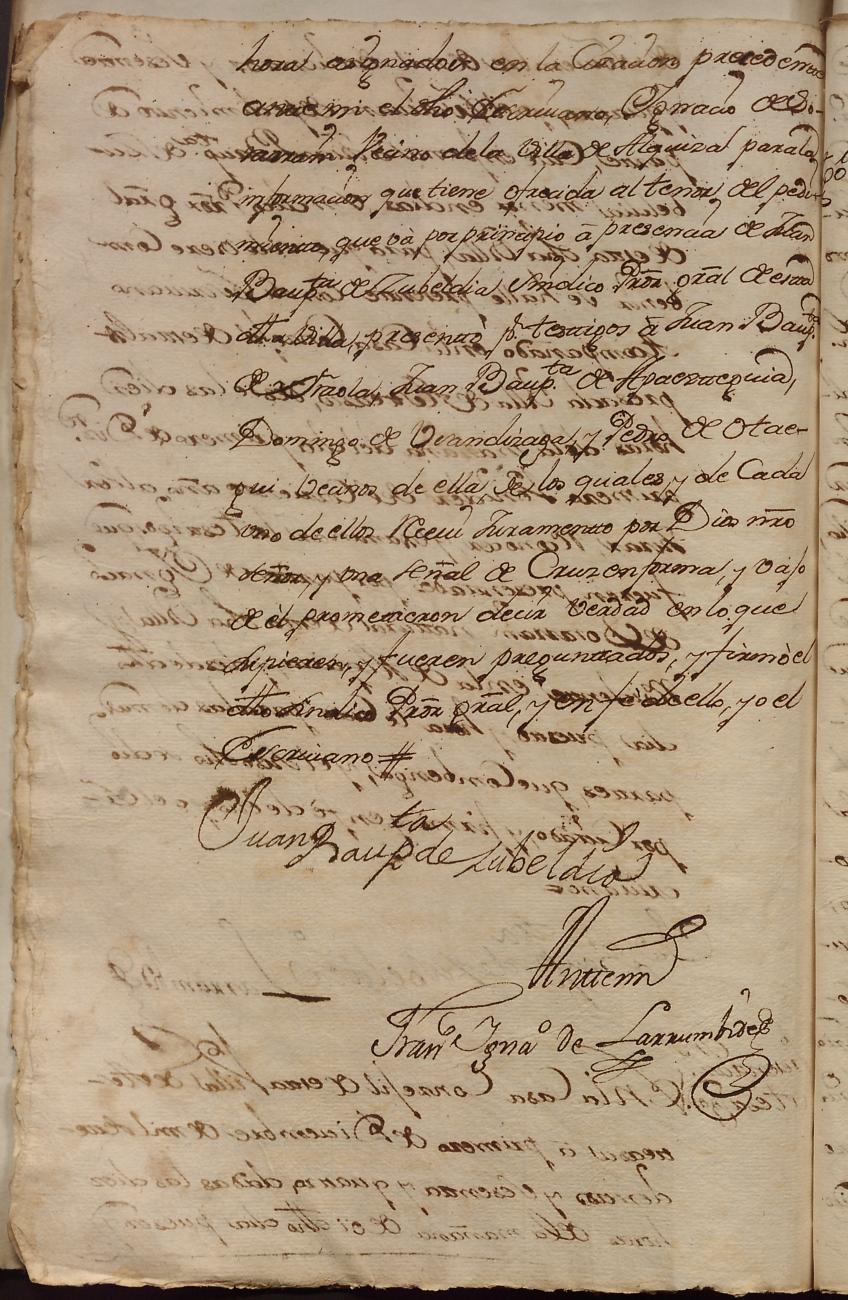 horas asignados en la Citacion precedente
ante mi el dho Escriuano, Ignacio de So-
rarrain Vecino de la Villa de Alquiza para la
informacion que tiene ofrecida al tenor del pedi-
miento, que và por principio à presencia de Juan
Baup.ta de Zubeldia Sindico Pror gral de esta
dha Villa, presentò p.r testigos à Juan Baup.ta
de Juan Baup.ta de Apaezteguia,
Domingo de y Pedro de Otae-
gui vecinos de ella de los quales, y de Cada
vno de ellos Receui Juramento por Dios nro
señor, y vna señal de Cruz en forma, y vajo
de èl prometieron decir verdad en lo que
supieren, y fueren preguntados, y firmò el
dho Sindico Pror gral, y en fe de ello, yo el
Escriuano #
Juan Baup.ta de Zubeldia
Antemi
Fran.co Igna.o de Larrumbide